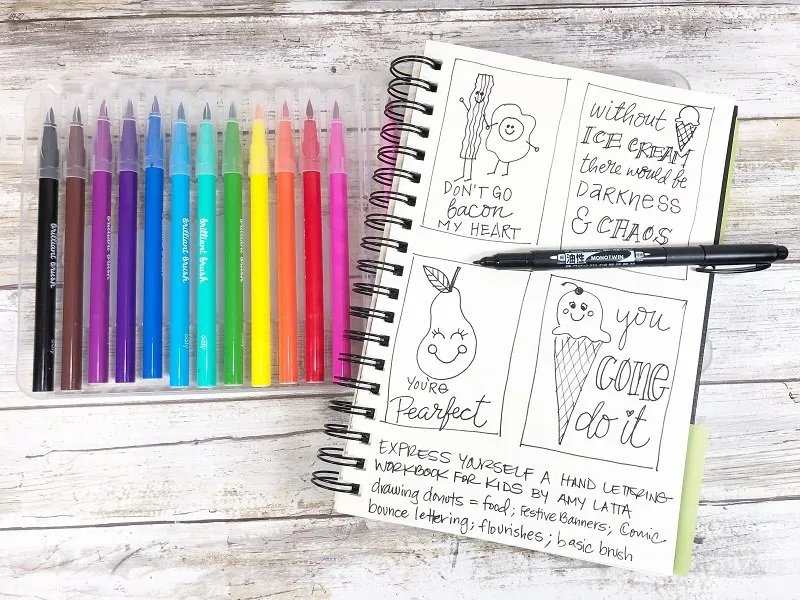 DON'T GO
bacon
MY HEART
without
ICE CREAM
there would be
DARKNESS
& CHAOS
油性 MONOTWIN
YOU'RE
Pearfect
you
CONE
do it
EXPRESS YOURSELF A HAND LETTERING
WORKBOOK FOR KIDS BY AMY LATTA
drawing donuts = food; Festive Banners; Comic
bounce lettering; flourishes; basic brush
brilliant brush
ooly
brilliant brush
brilliant brush
ooly